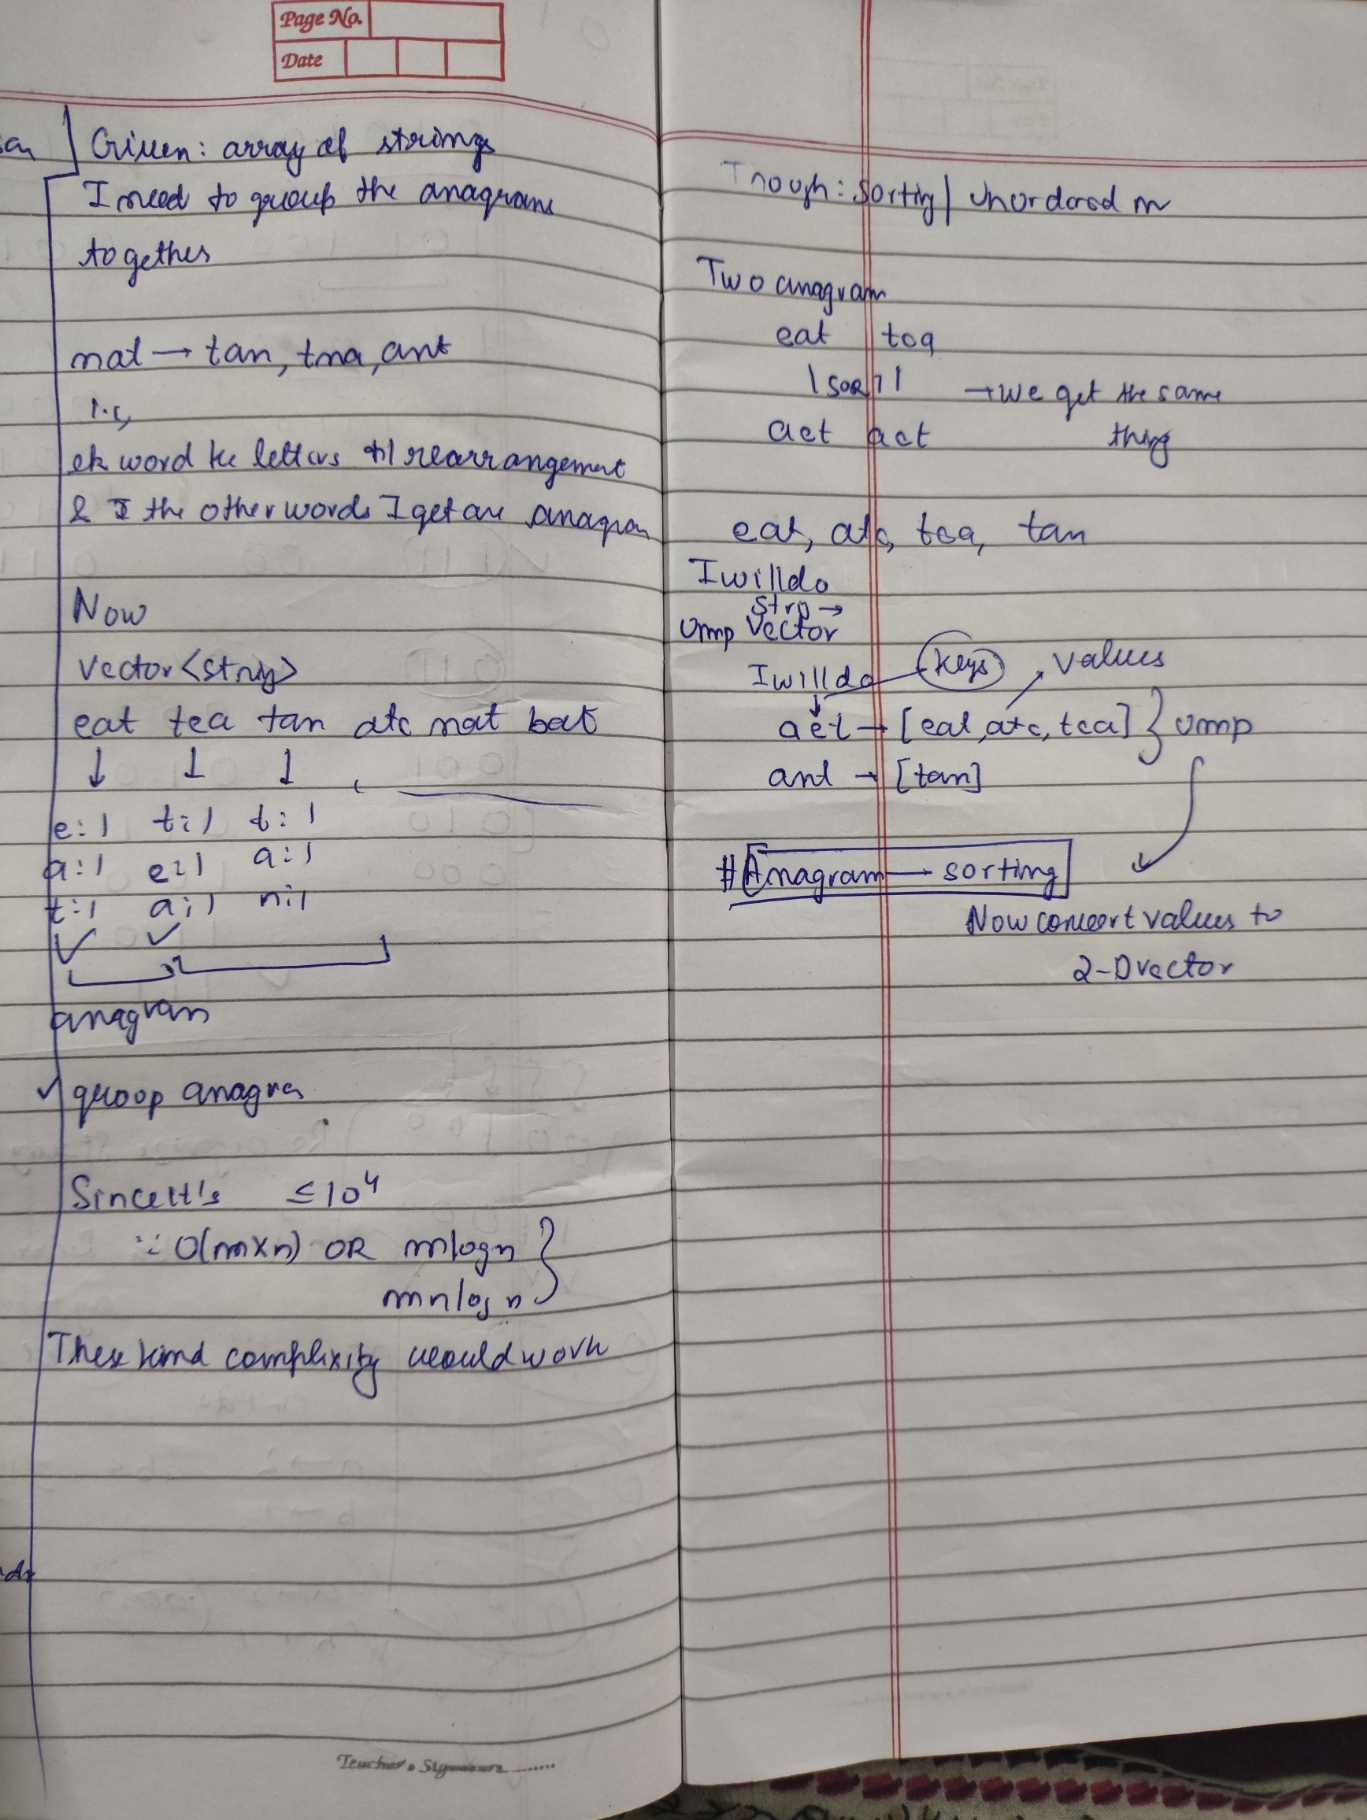 Page No.
Date
Given: array of strings
I need to group the anagrams
together
nat → tan, tna, ant
i.e,
ek word ke letters rearrangement
& the other words I get are anagram
Now
vector<string>
eat tea tan ate nat bat
e:1 t:1 t:1
a:1 e:1 a:1
t:1 a:1 n:1
anagram
group anagra
Since it's ≤ 10⁴
∵ O(m×n) OR mlogn
mnlog n
These kind complexity would work
Though: Sorting | Unordored m
Two anagram
eat tea
| SORT |
→ We get the same
aet aet
thing
eat, ate, tea, tan
I will do
Strn →
Ump Vector
I will do keys values
aet → [eat, ate, tea] } Ump
ant → [tan]
# Anagram — sorting
Now convert values to
2-D vector
Teacher's Signature ........